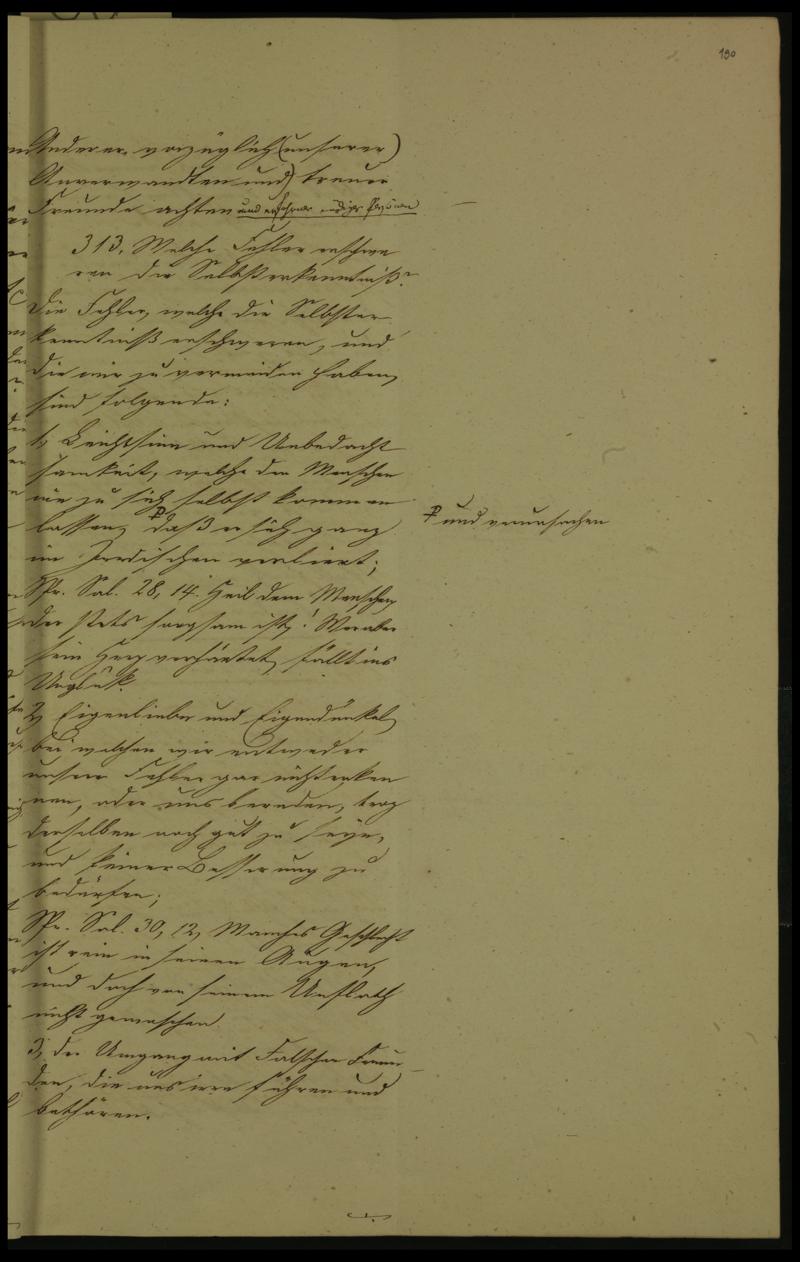 190
Anderer vorzüglich (unserer)
Anverwandten und) treuer
Freunde achten und erfahrner Personen
313. Welche Fehler erschwe
ren die Selbsterkenntniß?
Die Fehler, welche die Selbster
kenntniß erschweren, und
die wir zu vermeiden haben,
sind folgende:
1, Leichtsinn und Unbedacht
samkeit, welche den Menschen
nie zu sich selbst kommen
lassen, daß er sich ganz
und verursachen
im Irdischen verliert;
Spr. Sal. 28, 14. Heil dem Menschen,
der stets sorgsam ist! Wer aber
sein Herz verhärtet, fällt ins
Unglük.
2, Eigenliebe und Eigendünkel,
bei welchen wir entweder
unsere Fehler gar nicht erken
nen, oder uns bereden, troz
derselben noch gut zu seyn,
und keiner Besserung zu
bedürfen;
Spr. Sal. 30, 12, Manches Geschlecht
ist rein in seinen Augen,
und doch von seinem Unflath
nicht gewaschen
3, der Umgang mit Falschen Freun
den, die uns irre führen und
bethören.